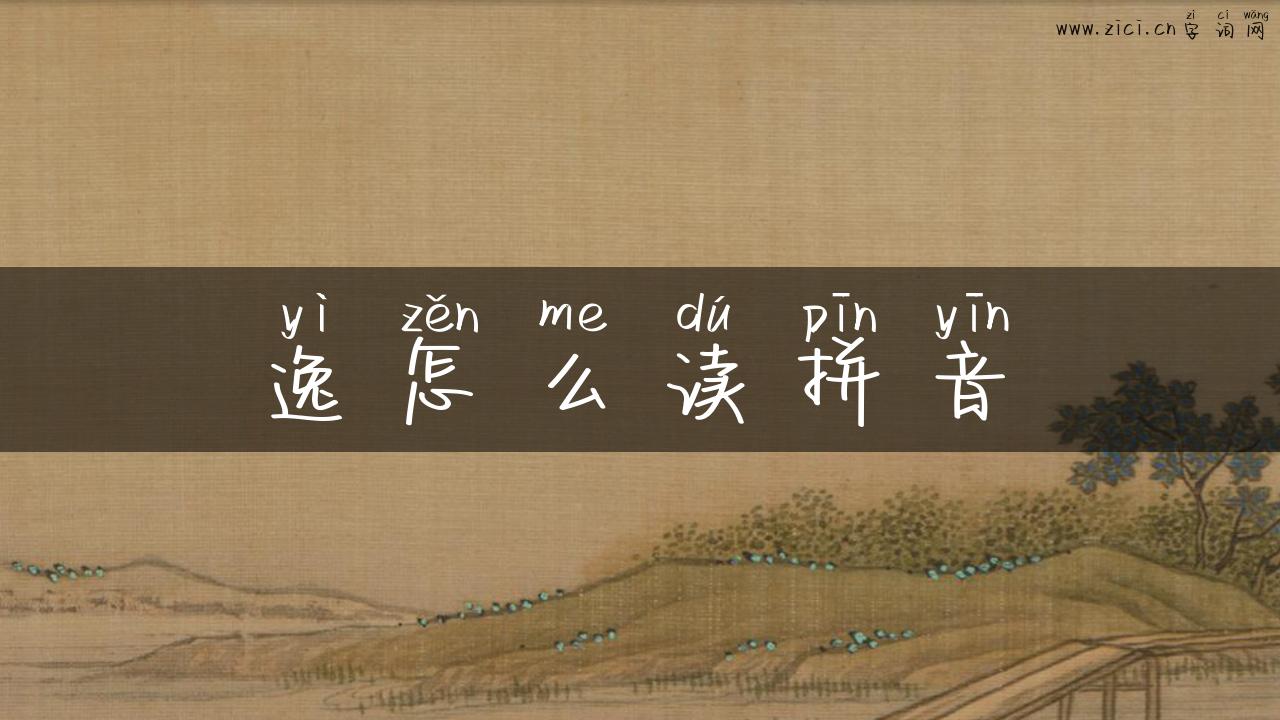 zì cí wǎng
www.zici.cn字词网
yì zěn me dú pīn yīn
逸怎么读拼音